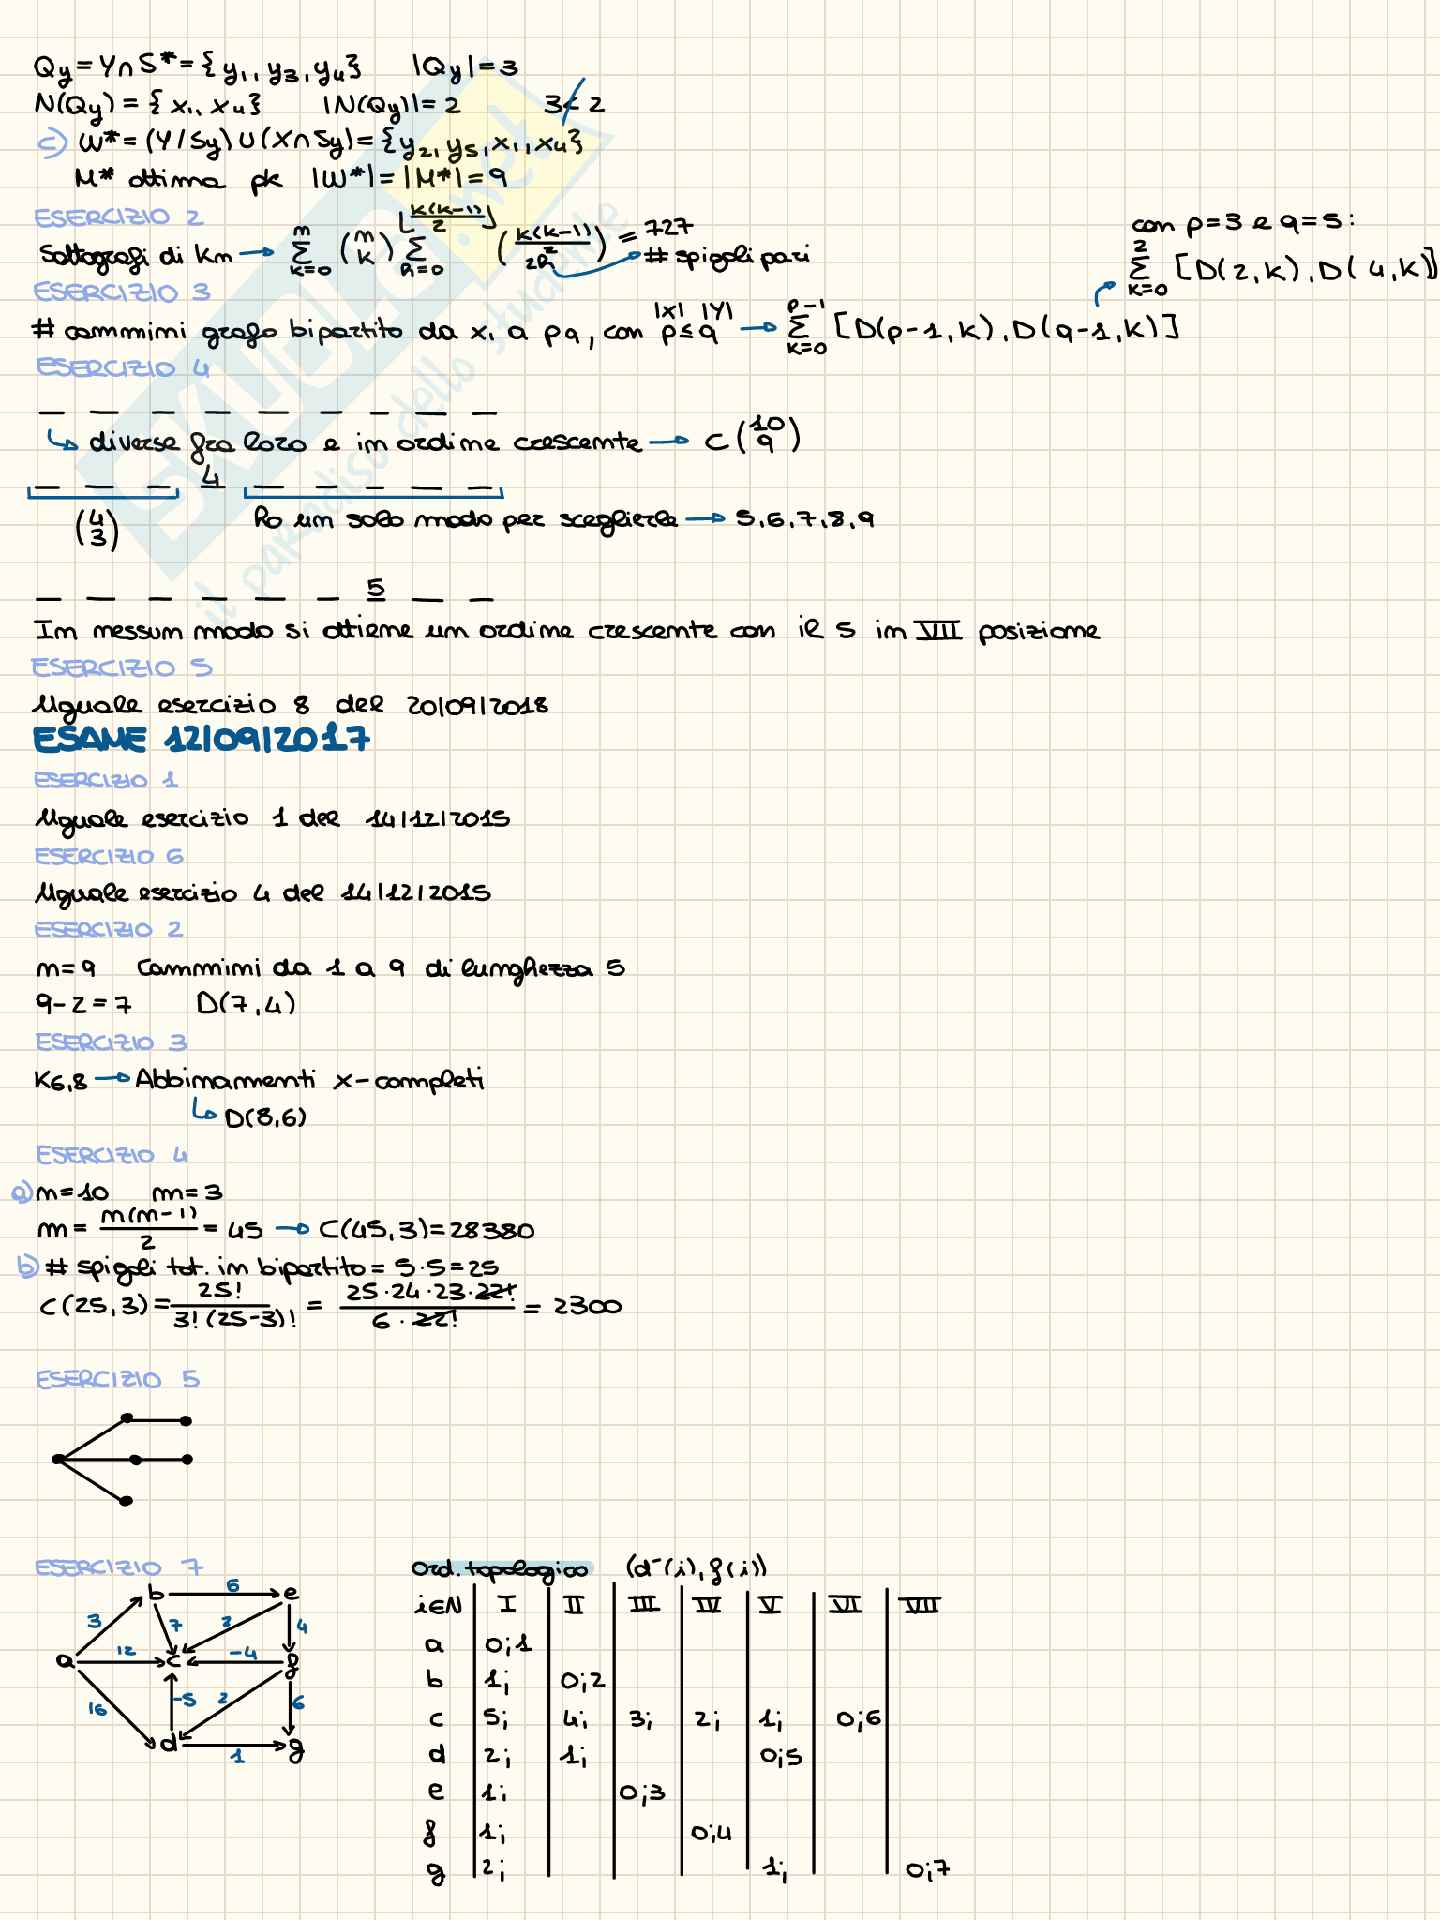 Qy = Y∩S* = {y₁, y₃, y₄} |Qy| = 3
N(Qy) = {x₁, x₄} |N(Qy)| = 2 3≮2
c) W* = (Y/Sy)∪(X∩Sy) = {y₂, y₅, x₁, x₄}
M* ottima pk |W*| = |M*| = 9
ESERCIZIO 2
Sottografi di Kn → ∑_{k=0}^{n} (n k) ∑_{h=0}^{⌊k(k-1)/2⌋} (k(k-1)/2 2h) = 727
# spigoli pari
ESERCIZIO 3
# cammini grafo bipartito da x₁ a pq, con |X| |Y| p≤q → ∑_{k=0}^{p-1} [D(p-1,k).D(q-1,k)]
con p=3 e q=5:
∑_{k=0}^{2} [D(2,k).D(4,k)]
ESERCIZIO 4
_ _ _ _ _ _ _ _ _
↳ diverse fra loro e in ordine crescente → C (10 9)
_ _ _ 4 _ _ _ _ _
(4 3) ho un solo modo per sceglierle → 5,6,7,8,9
_ _ _ _ _ _ 5 _ _
In nessun modo si ottiene un ordine crescente con il 5 in VII posizione
ESERCIZIO 5
Uguale esercizio 8 del 20|09|2018
ESAME 12|09|2017
ESERCIZIO 1
Uguale esercizio 1 del 14|12|2015
ESERCIZIO 6
Uguale esercizio 4 del 14|12|2015
ESERCIZIO 2
n=9 Cammini da 1 a 9 di lunghezza 5
9-2=7 D(7,4)
ESERCIZIO 3
K6,8 → Abbinamenti x-completi
↳ D(8,6)
ESERCIZIO 4
a) n=10 m=3
m = n(n-1)/2 = 45 → C(45,3)=28380
b) # spigoli tot. in bipartito = 5·5=25
C(25,3) = 25!/3!(25-3)! = 25·24·23·22!/6·22! = 2300
ESERCIZIO 5
ESERCIZIO 7
b 6 e
3 7 2 4
a 12 c -4 f
16 -5 2 6
d 1 g
Ord. topologico (d⁻(i), f(i))
i∈N I II III IV V VI VII
a 0;1
b 1; 0;2
c 5; 4; 3; 2; 1; 0;6
d 2; 1; 0;5
e 1; 0;3
f 1; 0;4
g 2; 1; 0;7
SKUOLA.net
il paradiso dello studente